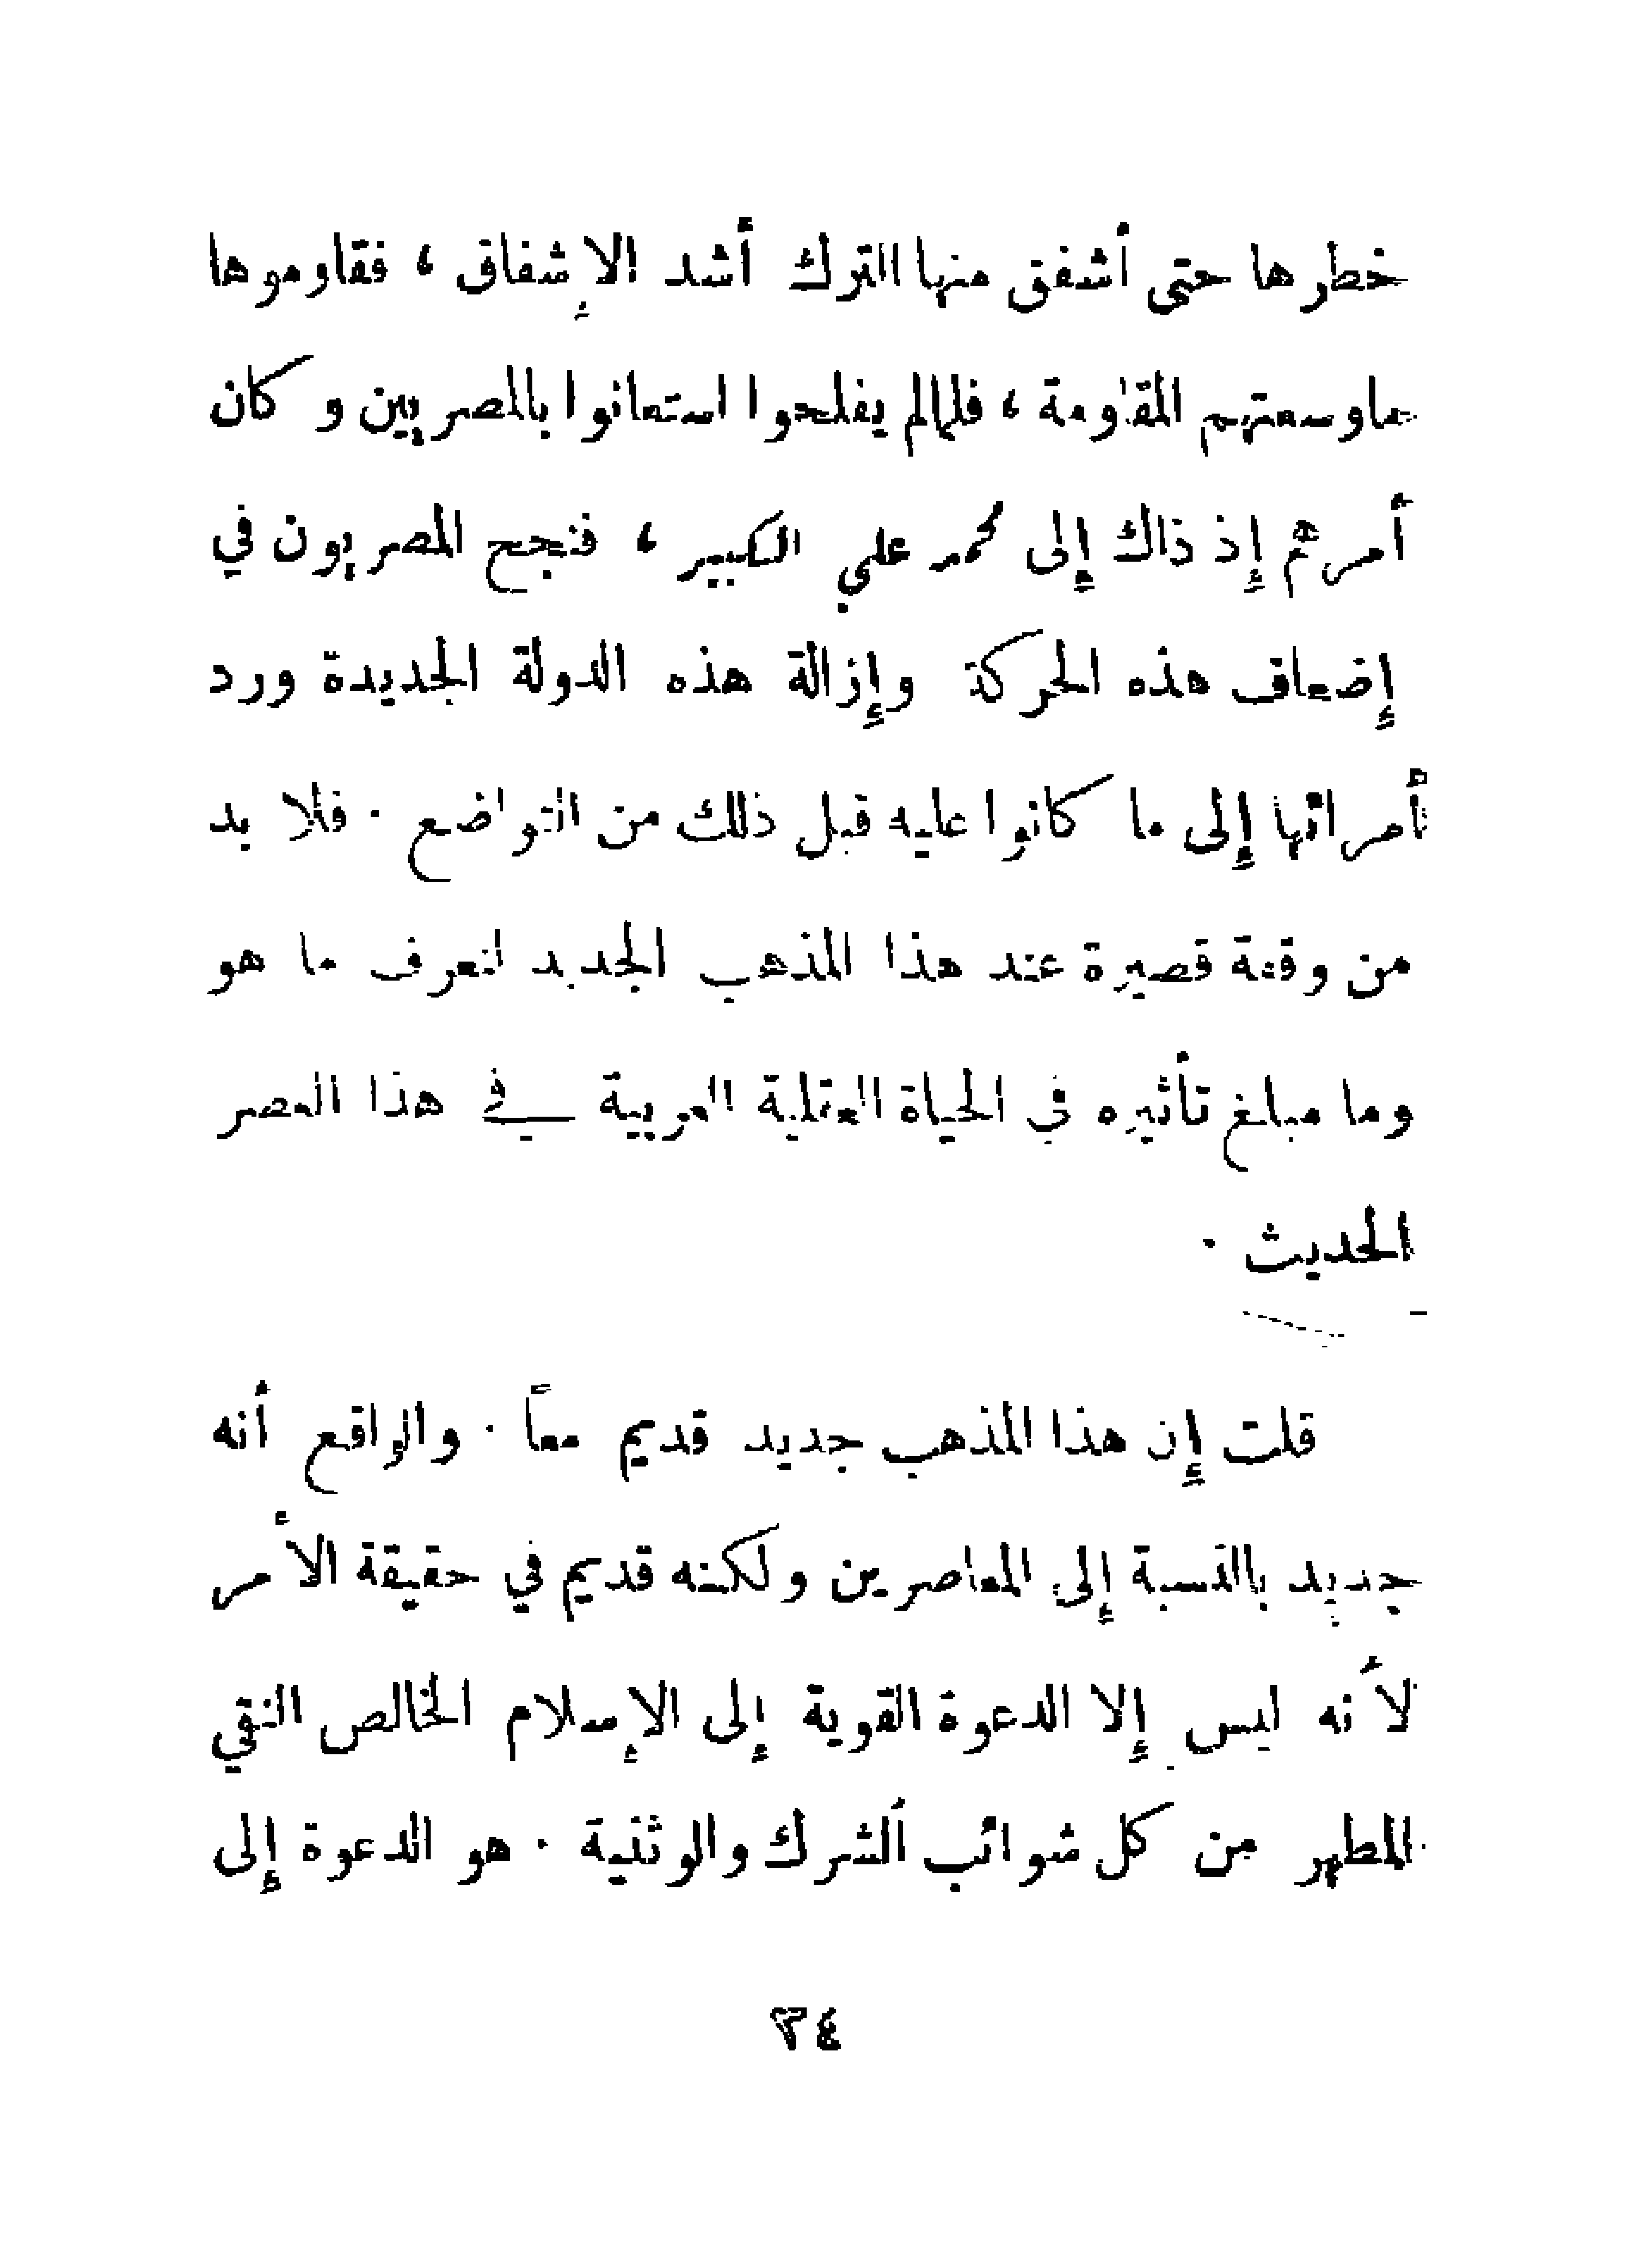 خطرها حتى أشفق منها الترك أشد الإشفاق ، فقاوموها
ماوسعتهم المقاومة ، فلمالم يفلحوا استعانوا بالمصريين وكان
أمرهم إذ ذاك إلى محمد علي الكبير ، فنجح المصريون في
إضعاف هذه الحركة وإزالة هذه الدولة الجديدة ورد
أمرائها إلى ما كانوا عليه قبل ذلك من التواضع . فلا بد
من وقفة قصيرة عند هذا المذهب الجديد لنعرف ما هو
وما مبلغ تأثيره في الحياة العقلية العربية في هذا العصر
الحديث .
قلت إن هذا المذهب جديد قديم معاً . والواقع أنه
جديد بالنسبة إلى المعاصرين ولكنه قديم في حقيقة الأمر
لأنه ليس إلا الدعوة القوية إلى الإسلام الخالص النقي
المطهر من كل شوائب الشرك والوثنية . هو الدعوة إلى
٣٤